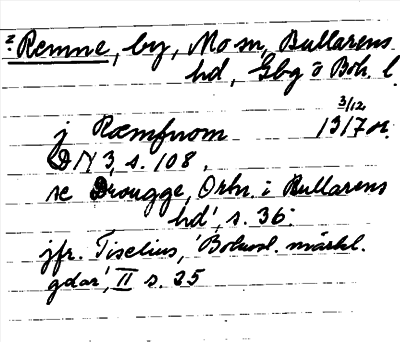 2 Remne, by, Mo sn, Bullarens
hd, Gbg o Boh. l.
3/12
j Ræmfnom 1317 or.
DN 3, s. 108.
se Drougge, Ortn. i Bullarens
hd', s. 36.
jfr. Tiselius, 'Bohusl. märkl.
gdar', II s. 25